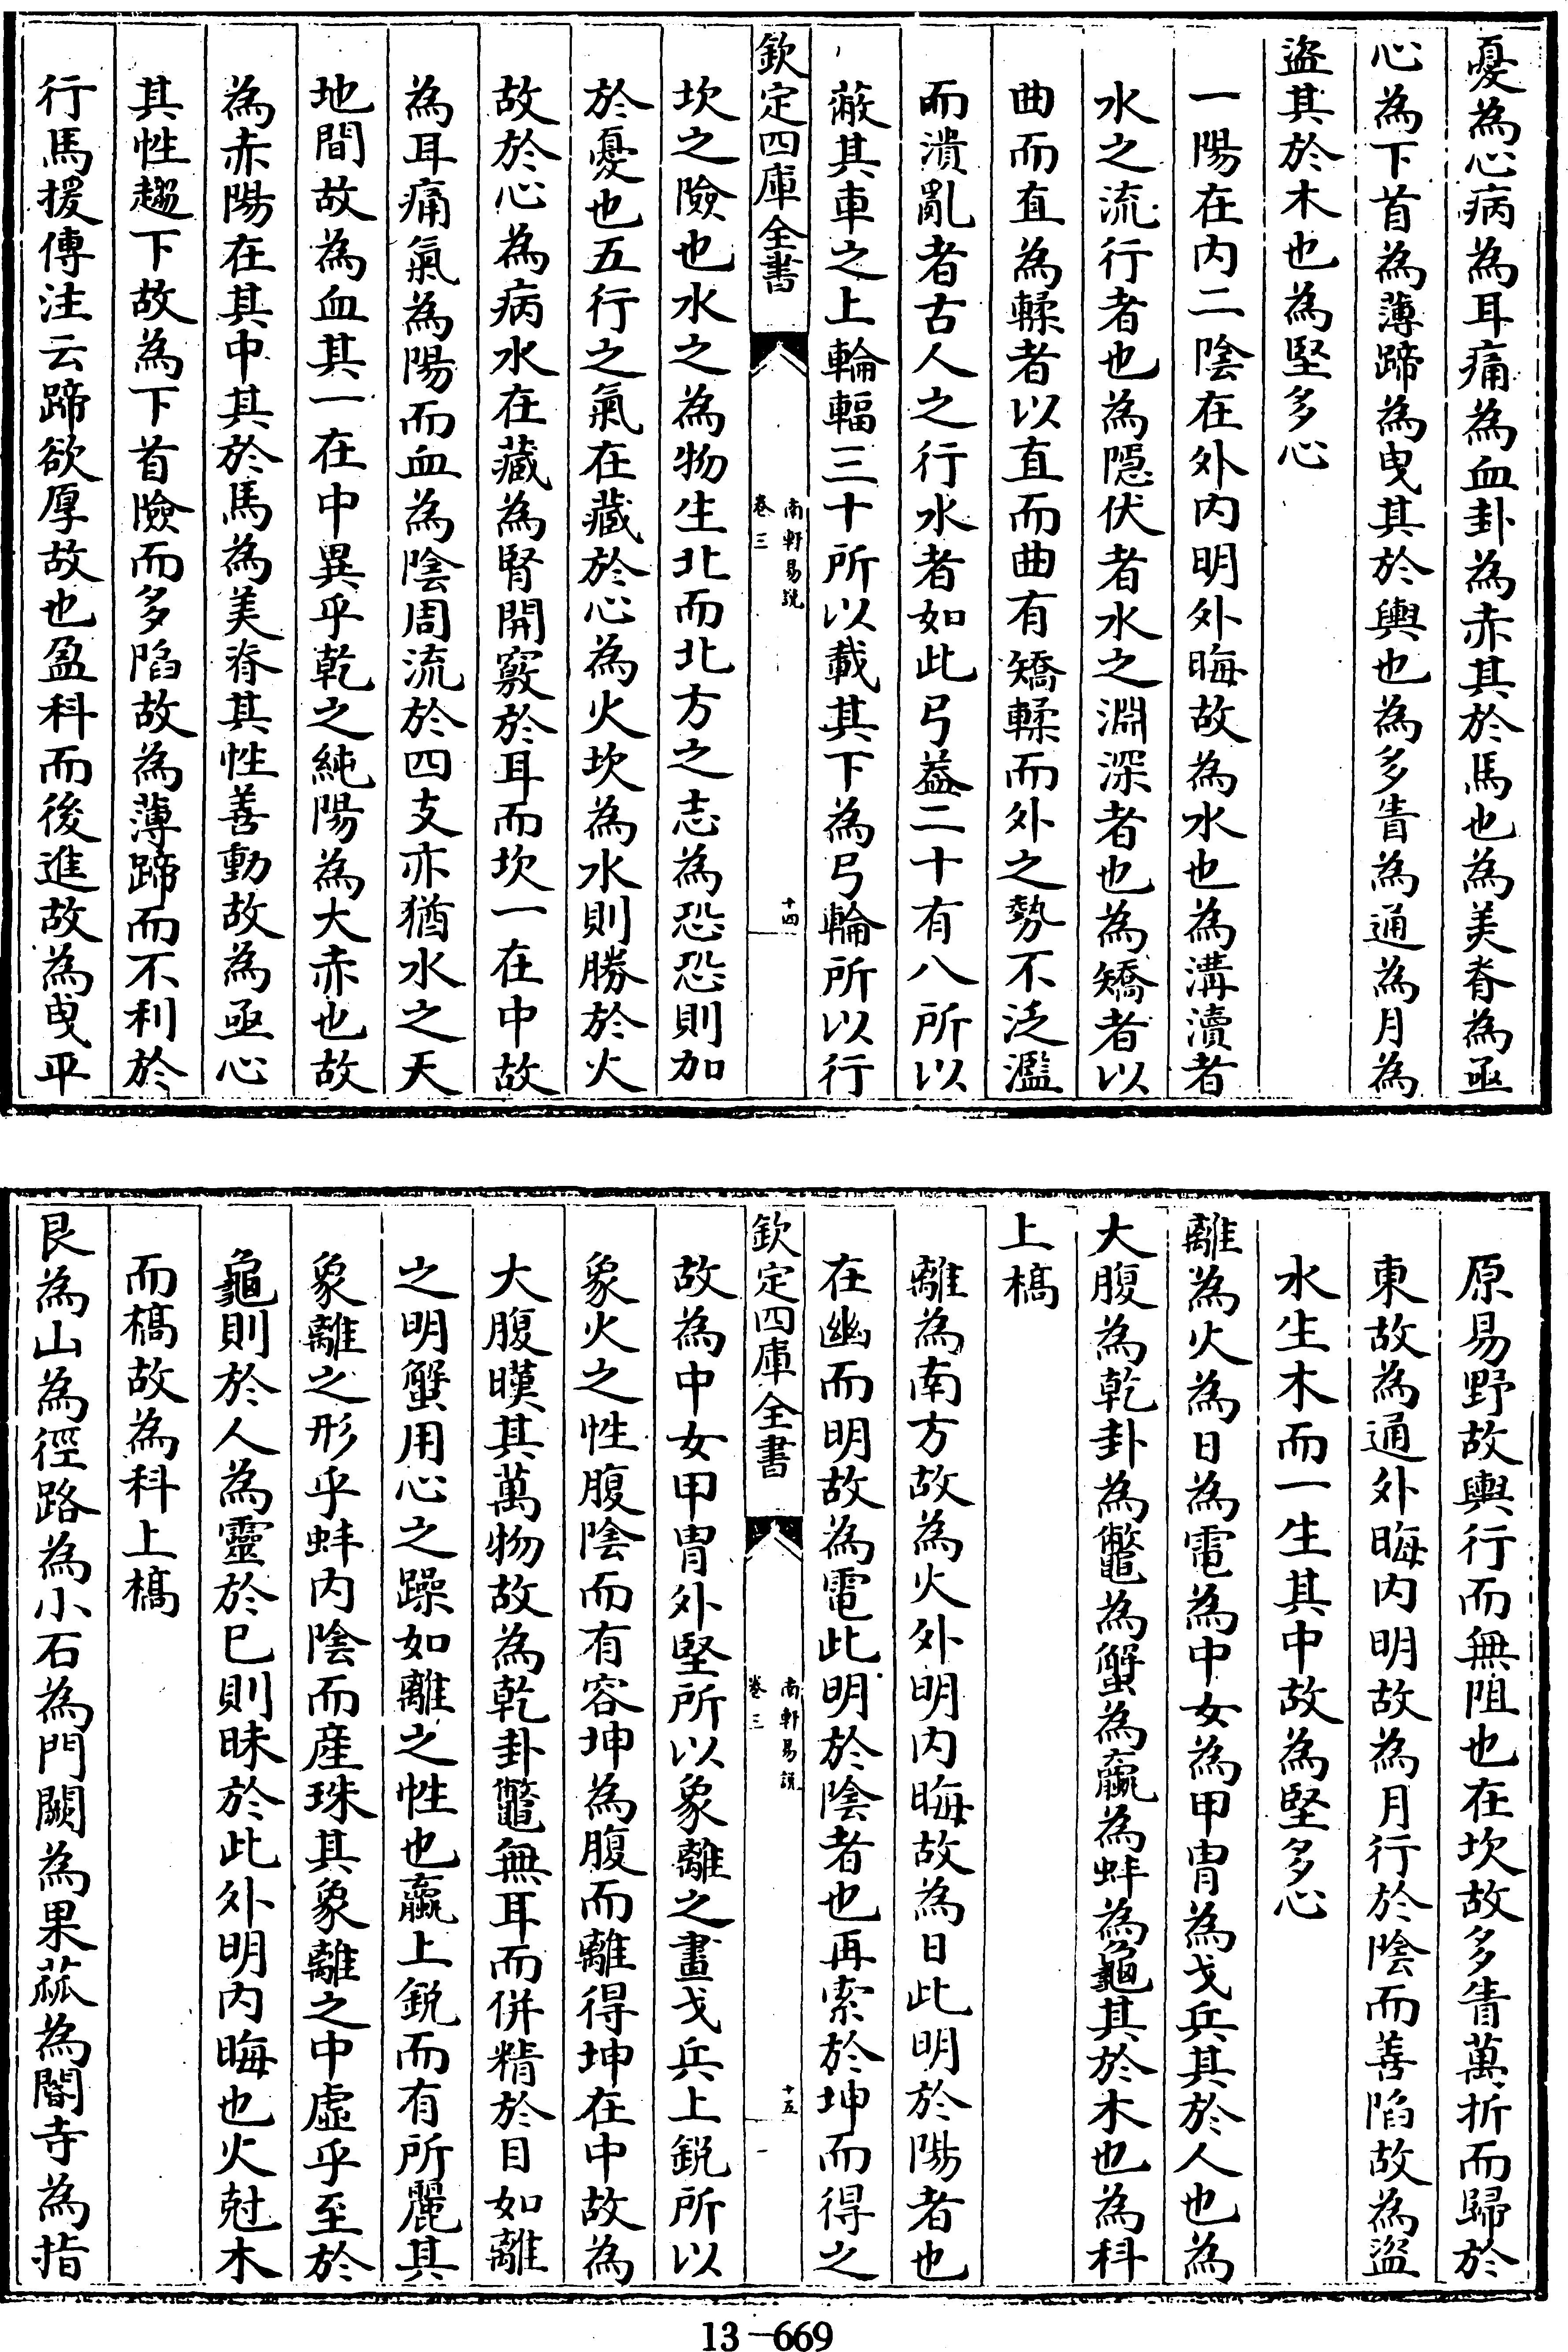 憂為心病為耳痛為血卦為赤其於馬也為美脊為亟
心為下首為薄蹄為曳其於輿也為多眚為通為月為
盜其於木也為堅多心
一陽在内二陰在外内明外晦故為水也為溝瀆者
水之流行者也為隱伏者水之淵深者也為矯者以
曲而直為輮者以直而曲有矯輮而外之勢不泛濫
而潰亂者古人之行水者如此弓蓋二十有八所以
蔽其車之上輪輻三十所以載其下為弓輪所以行
欽定四庫全書
南軒易說
卷三
十四
坎之險也水之為物生北而北方之志為恐恐則加
於憂也五行之氣在藏於心為火坎為水則勝於火
故於心為病水在藏為腎開竅於耳而坎一在中故
為耳痛氣為陽而血為陰周流於四支亦猶水之天
地間故為血其一在中異乎乾之純陽為大赤也故
為赤陽在其中其於馬為美脊其性善動故為亟心
其性趨下故為下首險而多陷故為薄蹄而不利於
行馬援傳注云蹄欲厚故也盈科而後進故為曳平
原易野故輿行而無阻也在坎故多眚萬折而歸於
東故為通外晦内明故為月行於陰而善陷故為盜
水生木而一生其中故為堅多心
離為火為日為電為中女為甲胄為戈兵其於人也為
大腹為乾卦為鼈為蟹為蠃為蚌為龜其於木也為科
上槁
離為南方故為火外明内晦故為日此明於陽者也
在幽而明故為電此明於陰者也再索於坤而得之
欽定四庫全書
南軒易說
卷三
十五
故為中女甲胄外堅所以象離之畫戈兵上銳所以
象火之性腹陰而有容坤為腹而離得坤在中故為
大腹暵其萬物故為乾卦鼈無耳而併精於目如離
之明蟹用心之躁如離之性也蠃上銳而有所麗其
象離之形乎蚌内陰而産珠其象離之中虛乎至於
龜則於人為靈於已則昧於此外明内晦也火尅木
而槁故為科上槁
艮為山為徑路為小石為門闕為果蓏為閽寺為指
13-669